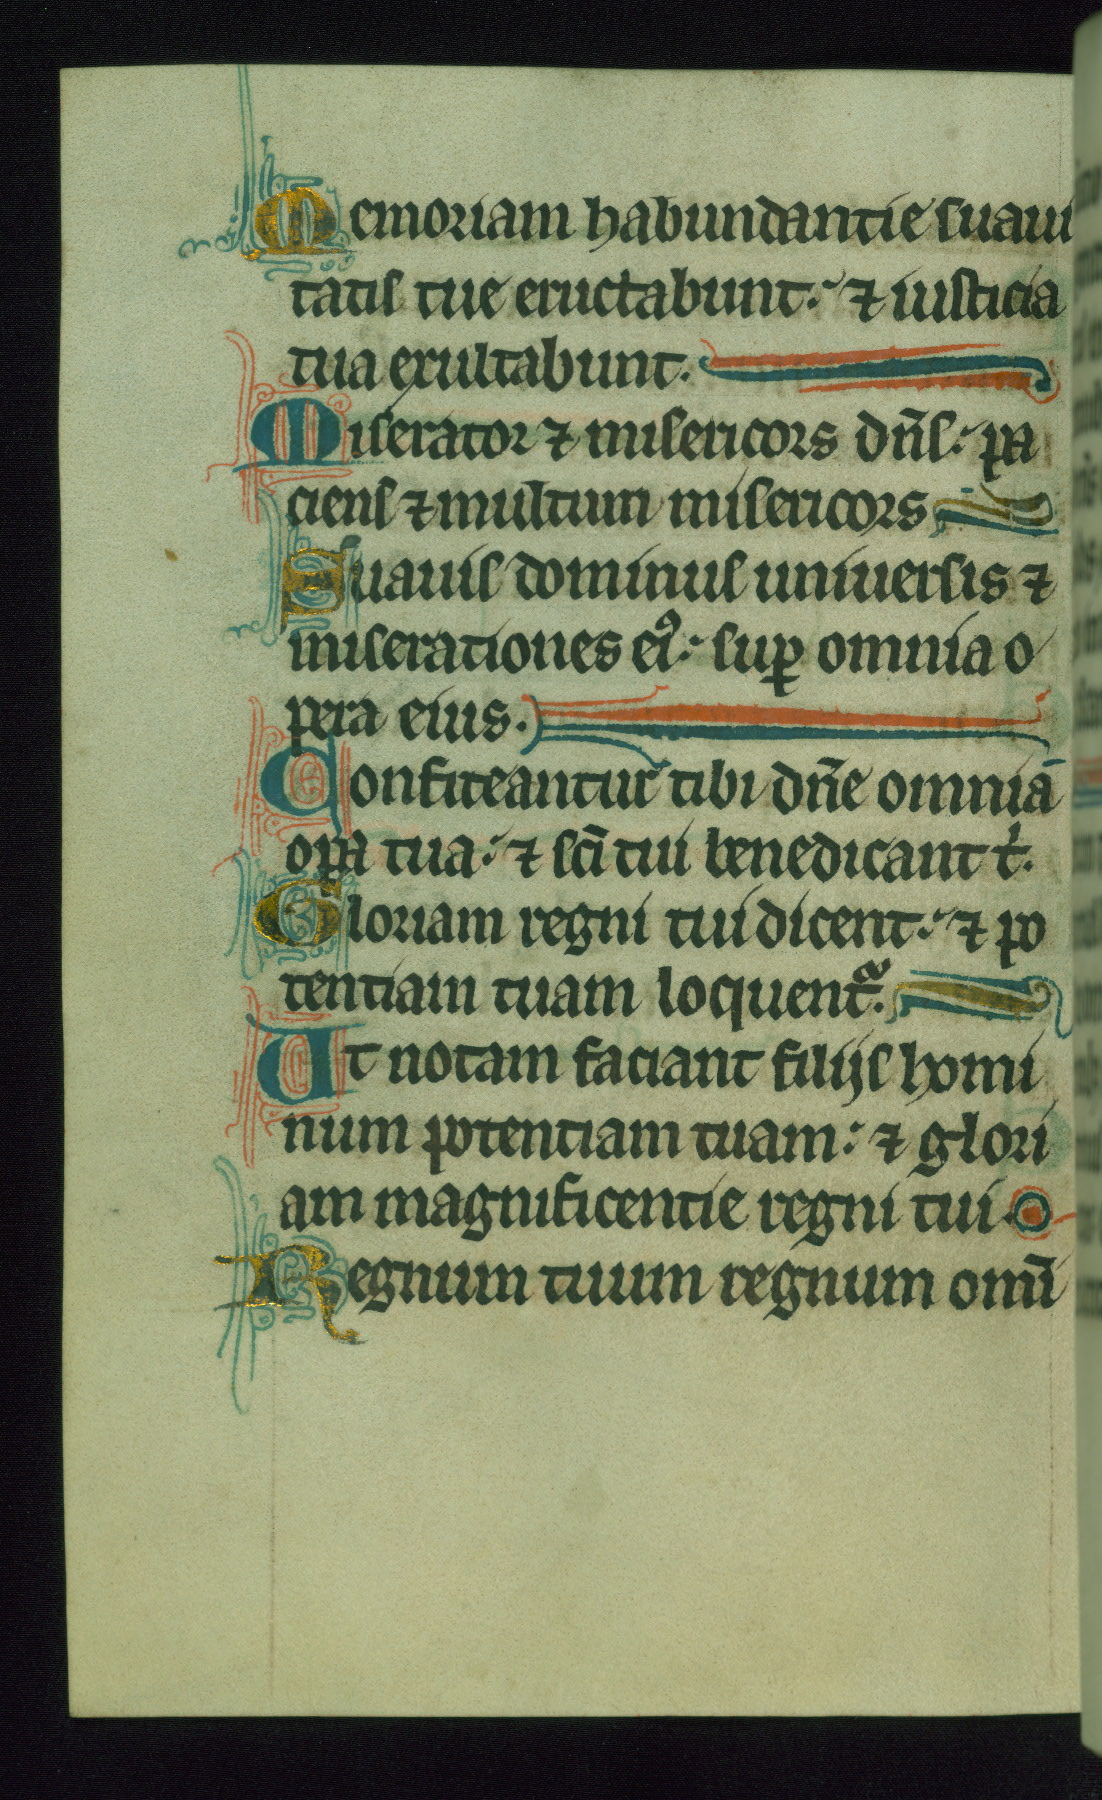 Memoriam habundantie suaui
tatis tue eructabunt: ⁊ iusticia
tua exultabunt.
Miserator ⁊ misericors dn̄s: pa
ciens ⁊ multum misericors
Suauis dominus uniuersis ⁊
miserationes eiꝰ: suꝑ omnia o
pera eius.
Confiteantur tibi dn̄e omnia
oꝑa tua: ⁊ sc̄i tui benedicant ṫ.
Gloriam regni tui dicent: ⁊ po
tentiam tuam loquentᷓ.
Ut notam faciant filijs homi
num potentiam tuam: ⁊ glori
am magnificentie regni tui.
Regnum tuum regnum omī